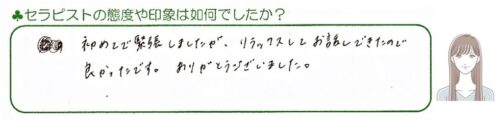 ♣セラピストの態度や印象は如何でしたか?
初めてで緊張しましたが、リラックスしてお話しできたので
良かったです。ありがとうございました。